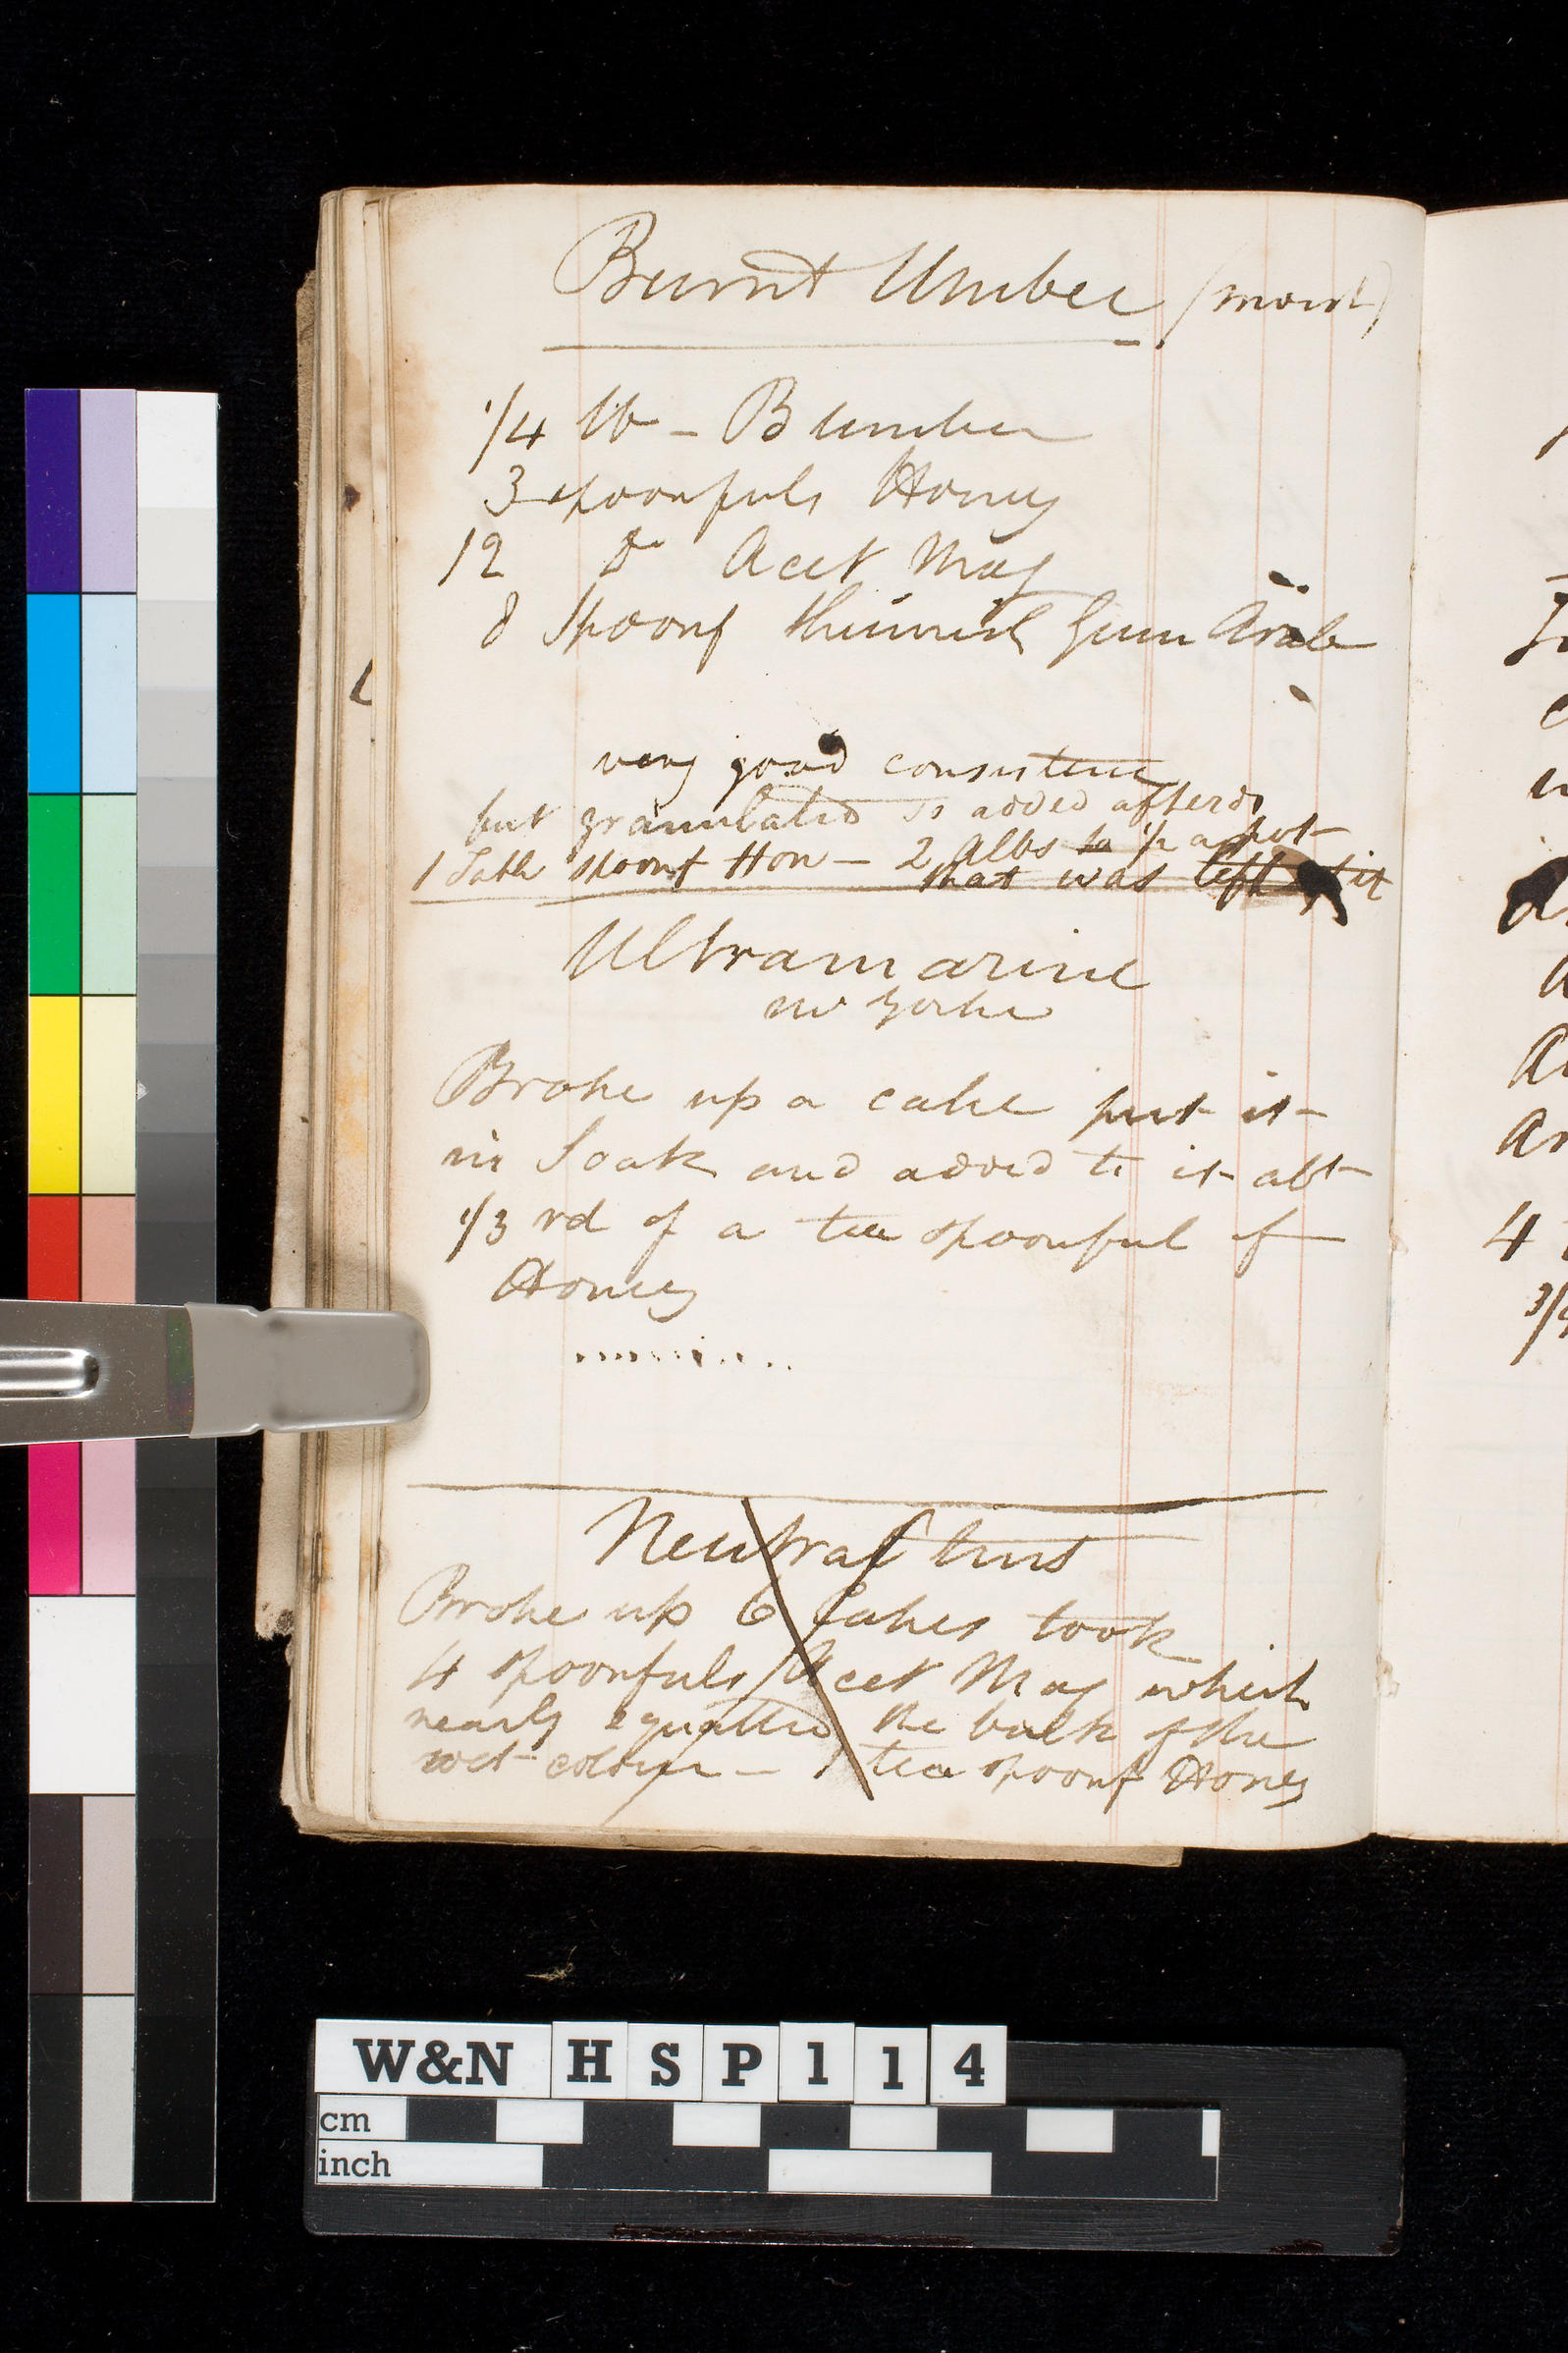 Burnt Umber (moist)
1/4 lb - B umber
3 spoonfuls Honey
12 do Acet Mag
8 Spoonf thinnish Gum Arab
very good consistency
but granulated so added afterds
1 Table spoonf Hon - 2 Albs to 1/2 a pot
that was left of it
Ultramarine
Broke up a cake put it
in Soak and added to it abt
1/3 rd of a tea spoonful of
Honey
Neutral tint
Broke up 6 Cakes took
4 spoonfuls Acet Mag which
nearly equalled the bulk of the
wet colour - 1 tea spoonf Honey
4
3/4
W&N HSP114
cm
inch